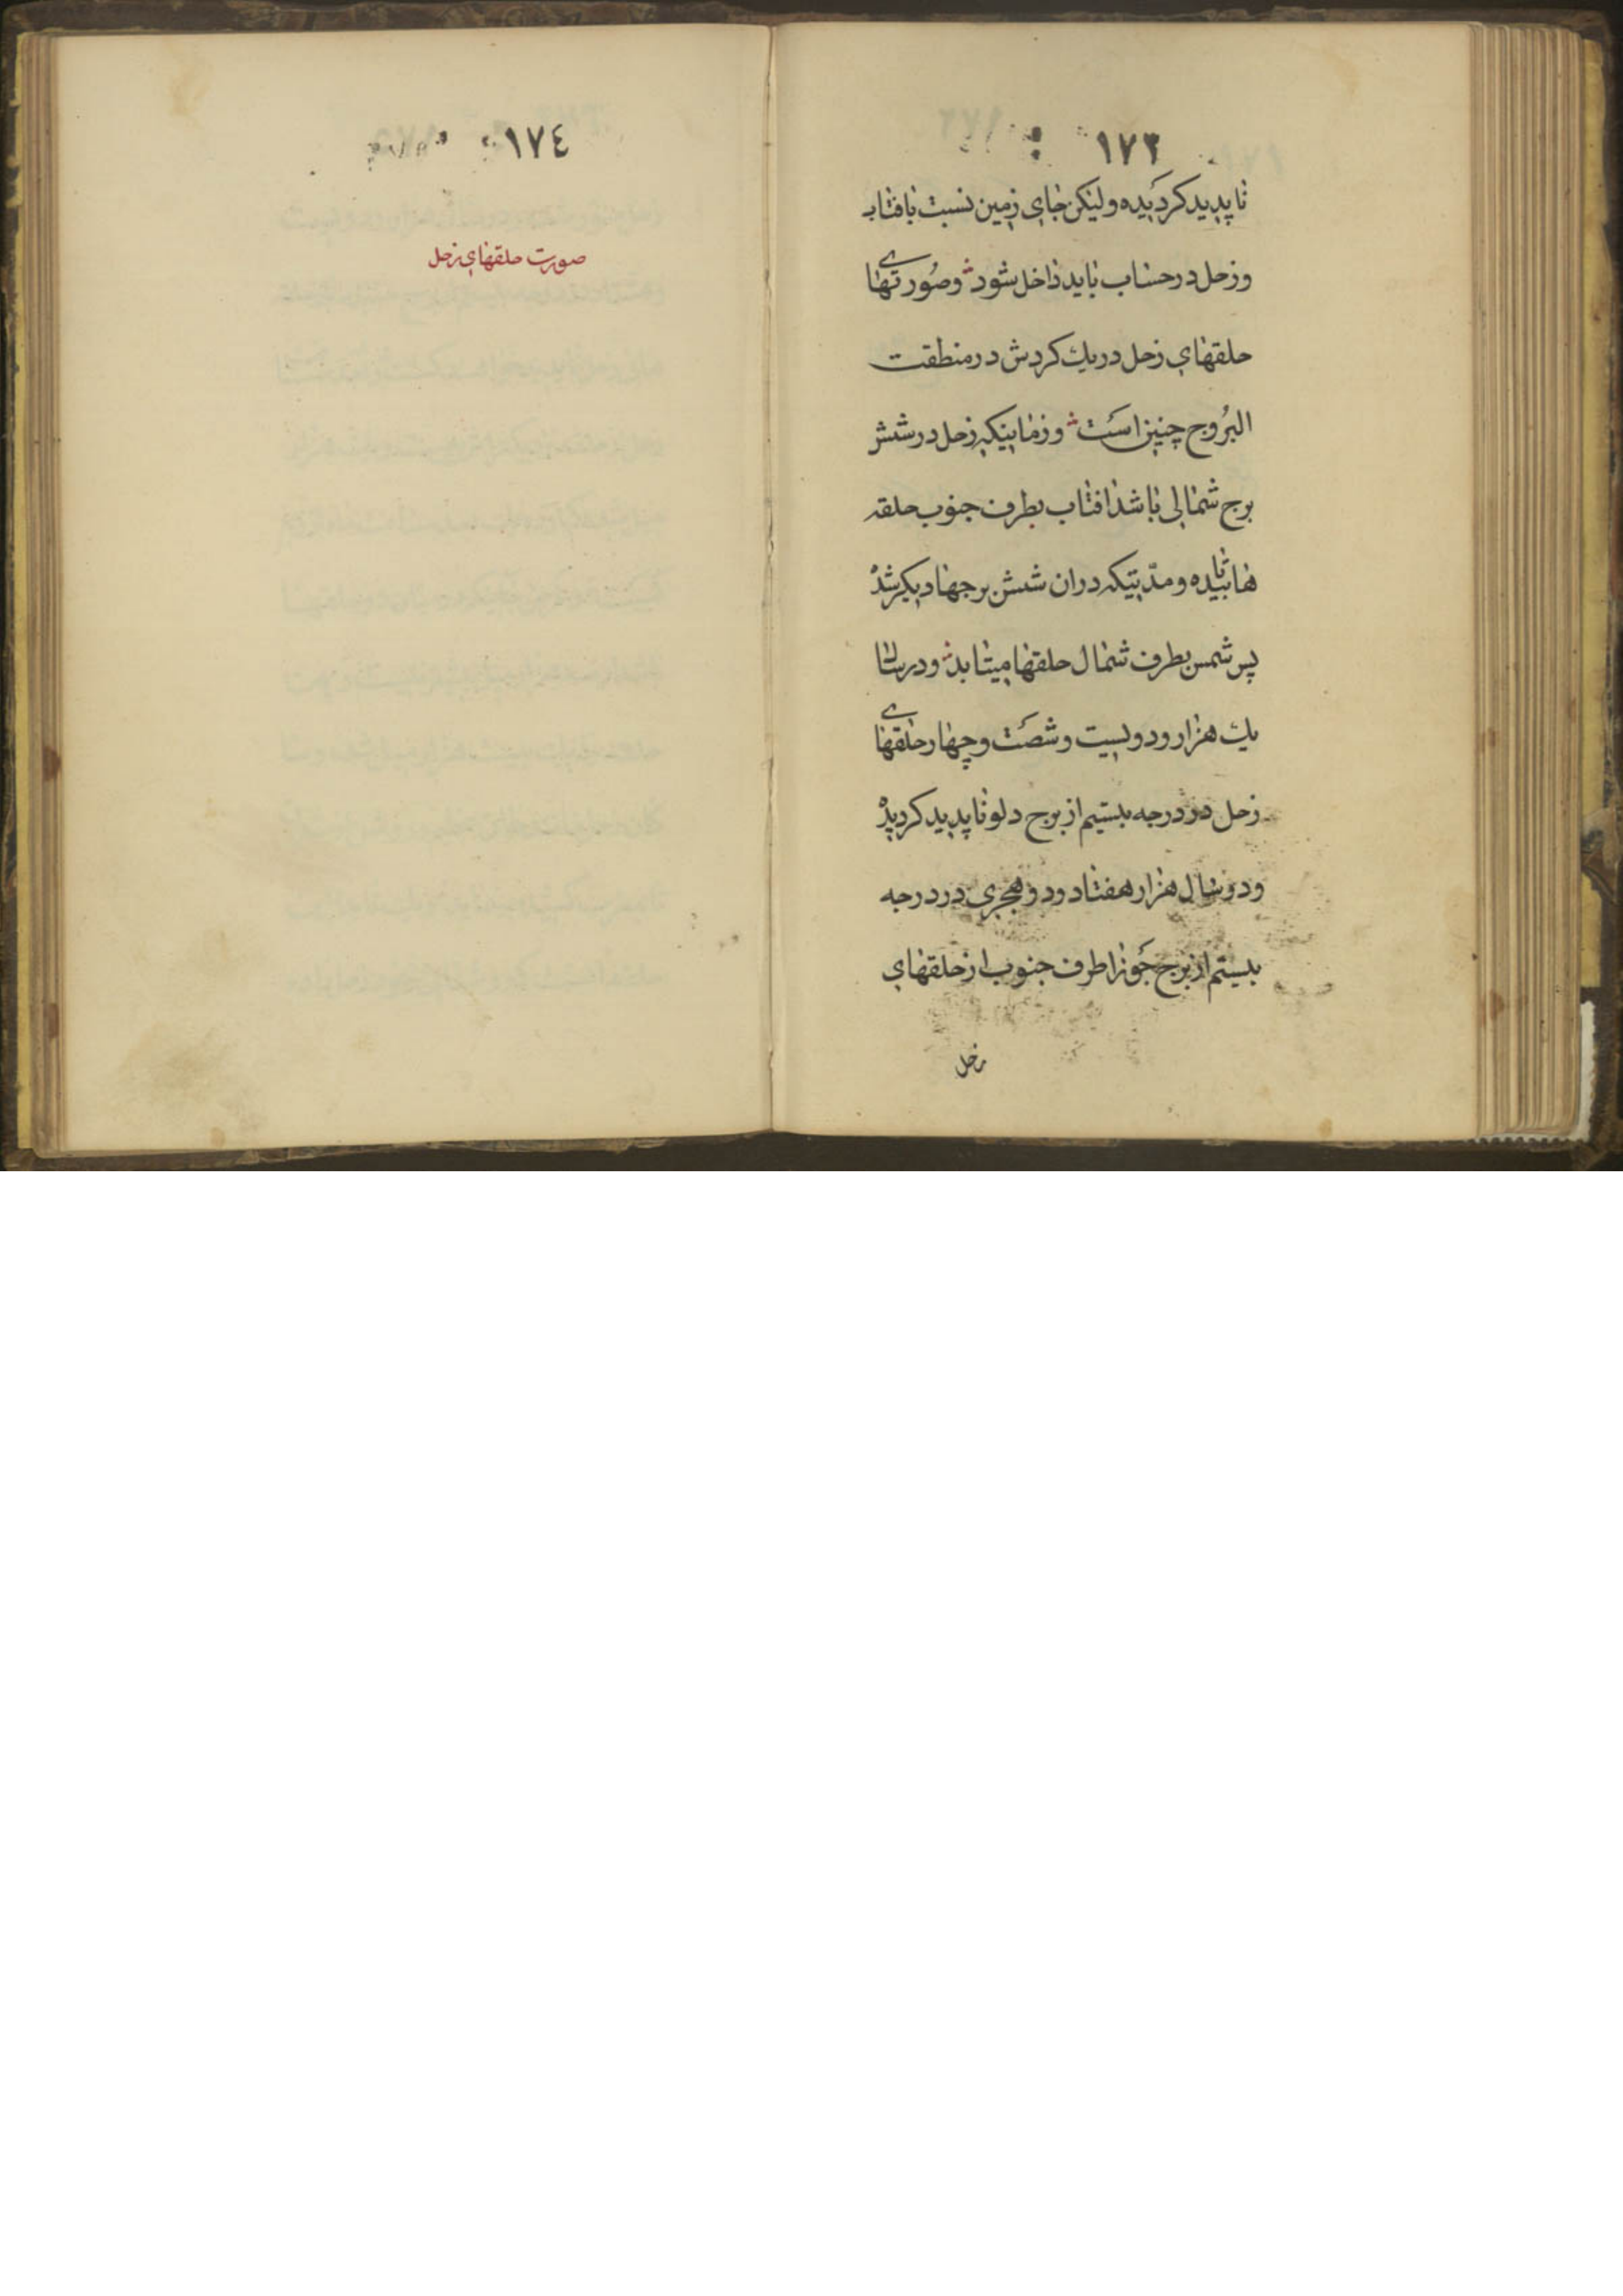 ١٧٣
ناپدید کردیده ولیکن جای زمین نسبت بافتاب
وزحل در حساب باید داخل شود وصورتهای
حلقهای زحل در یك کردش در منطقت
البروج چنین است وزمانیکه زحل در شش
برج شمالی باشد افتاب بطرف جنوب حلقه
ها تابیده ومدتیکه دران شش برجها دیکر شد
پس شمس بطرف شمال حلقها میتابد ودر سال
یك هزار ودویست وشصت وچهار حلقهای
زحل در درجه بیستیم از برج دلو ناپدید کردید
ودر سال هزار هفتاد ودو هجری در درجه
بیستم از برج جوزا طرف جنوب از حلقهای
زحل
١٧٤
صورت حلقهای زحل